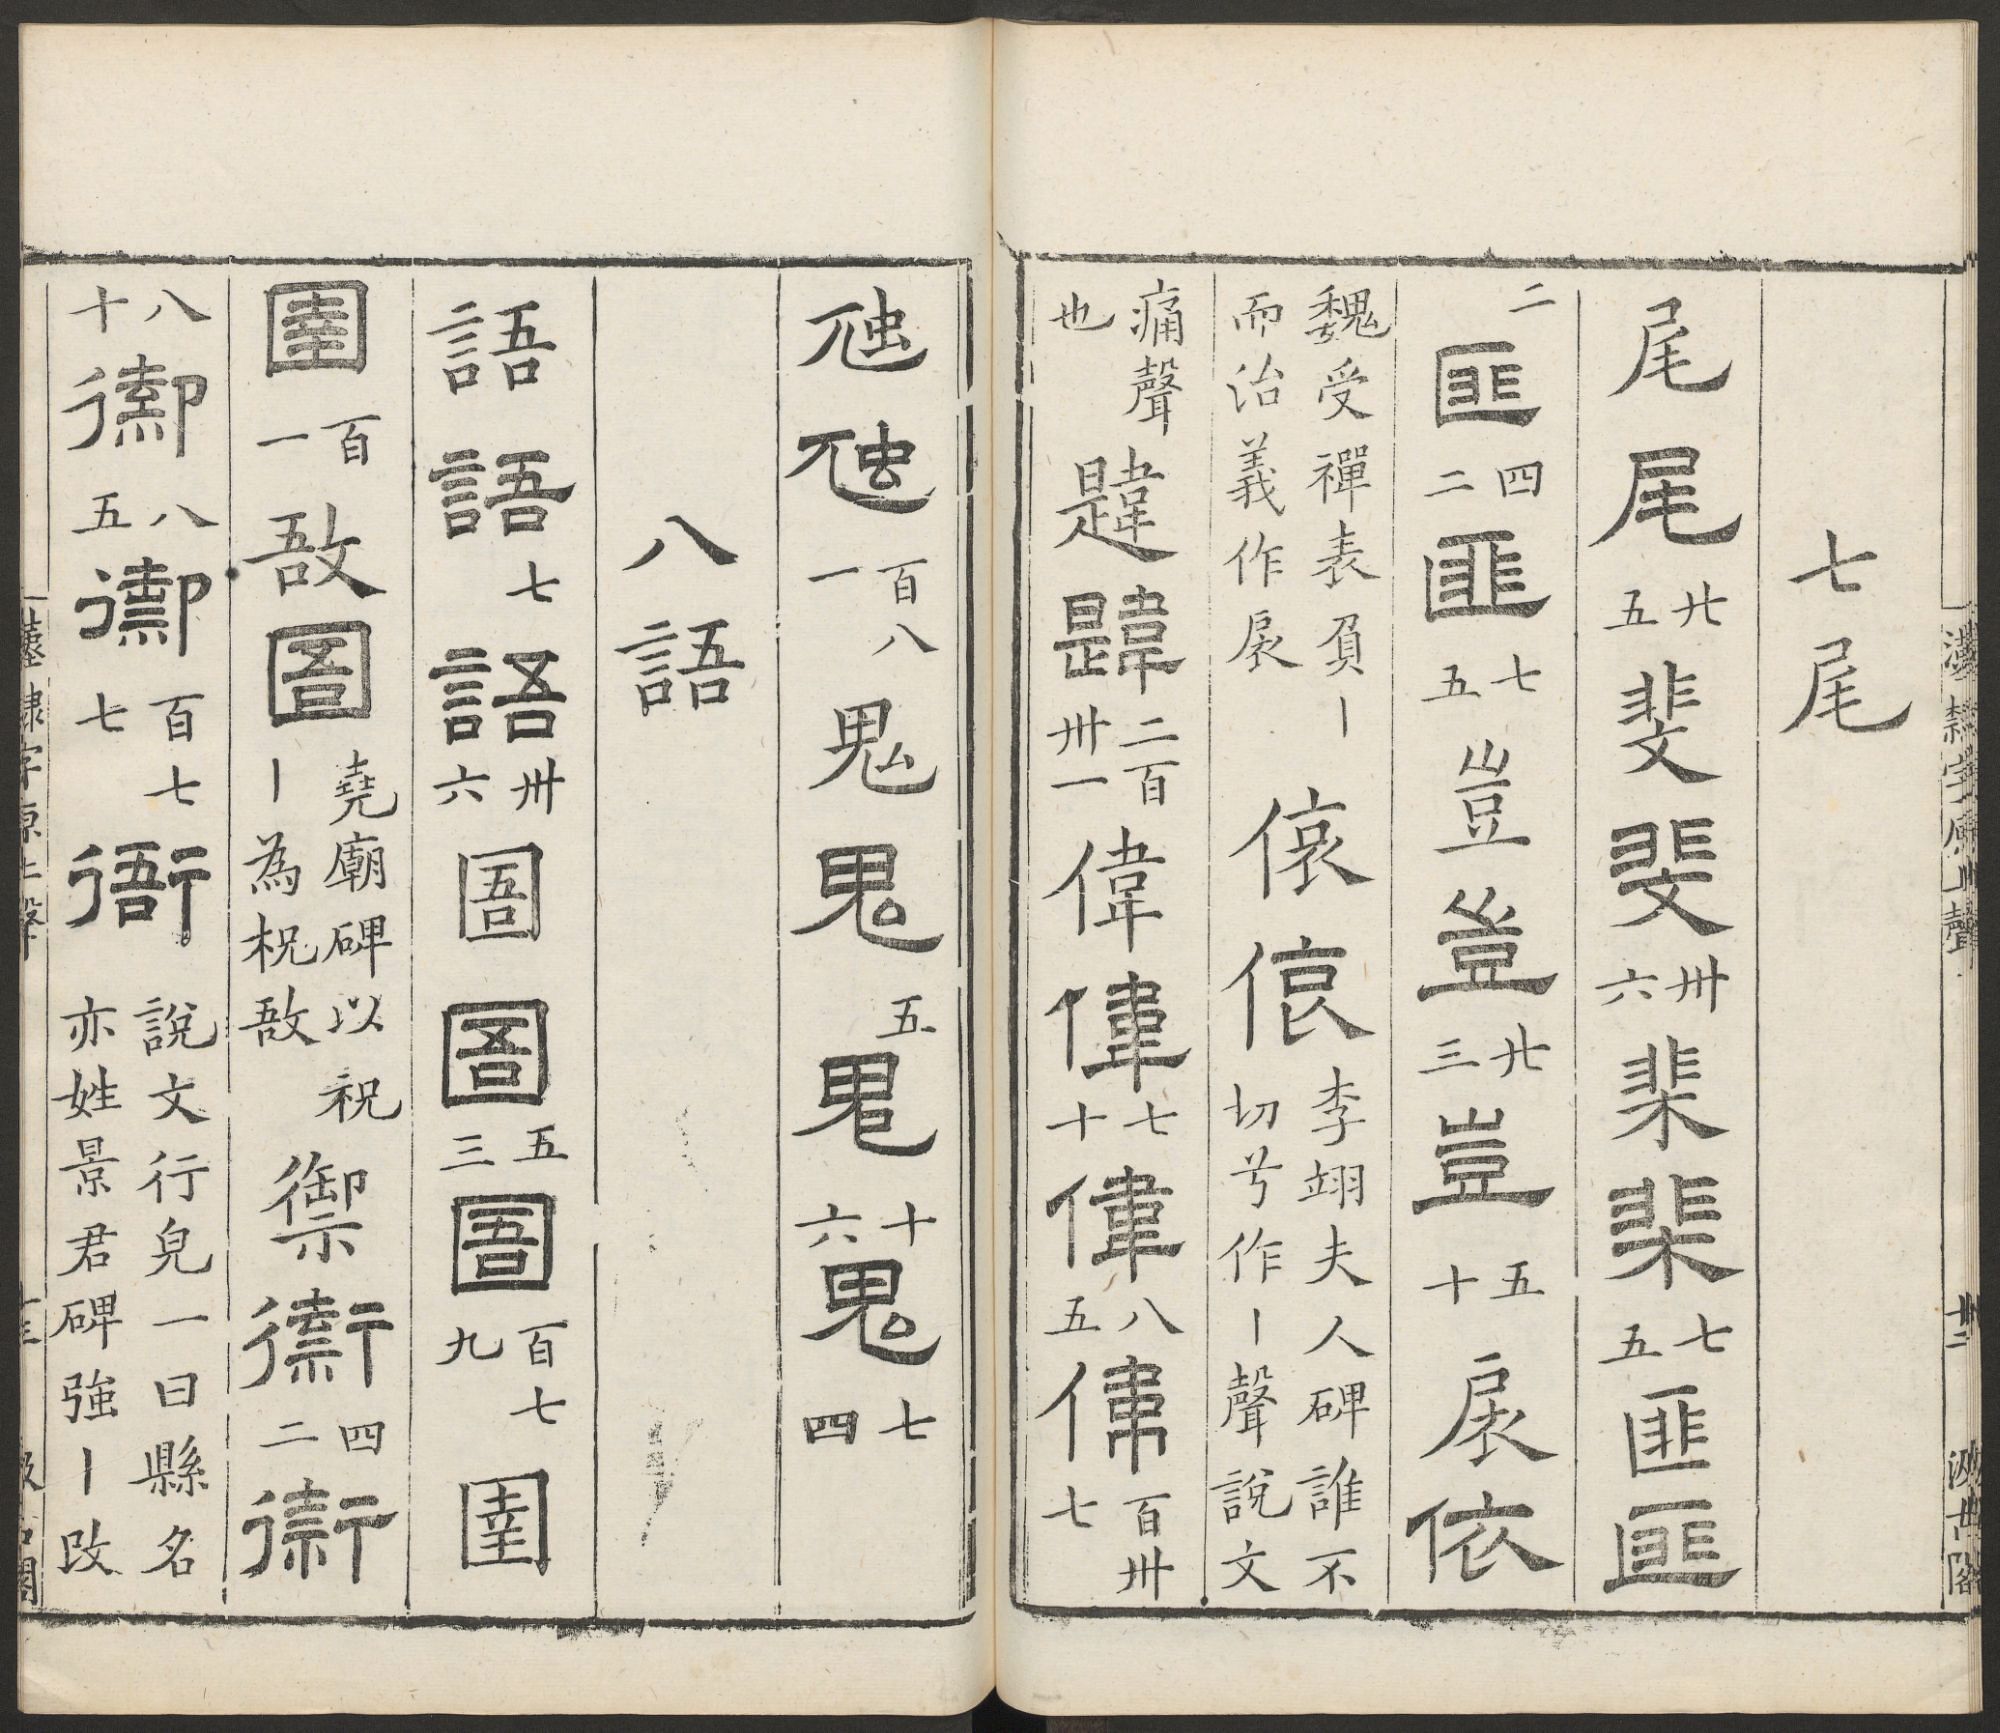 七尾
尾尾廿五斐斐卅六棐棐七五匪匪
二匪四二匪七五豈豈廿三豈五十扆依
魏受禪表負丨而治義作扆㥋㥋李翊夫人碑誰不切兮作丨聲說文
痛聲也韙韙二百卅一偉偉七十偉八五偉百卅七
虺虺百八一鬼鬼五鬼十六鬼七四
八語
語語七語卅六圄圄五三圄百七九圉
圉百一敔圄堯廟碑以祝丨為柷敔禦禦四二禦
八十禦八五禦百七七衙說文行皃一曰縣名亦姓景君碑強丨改